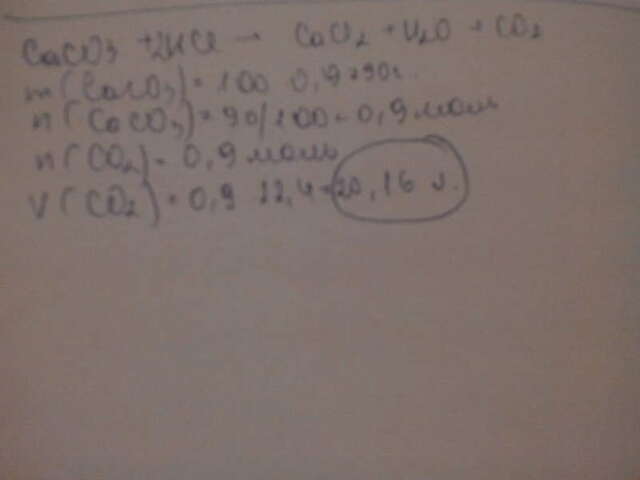 CaCO3 + 2HCl → CaCl2 + H2O + CO2
m(CaCO3) = 100 0,9 = 90г.
n(CaCO3) = 90/100 = 0,9 моль
n(CO2) = 0,9 моль
V(CO2) = 0,9 22,4 = 20,16 л.